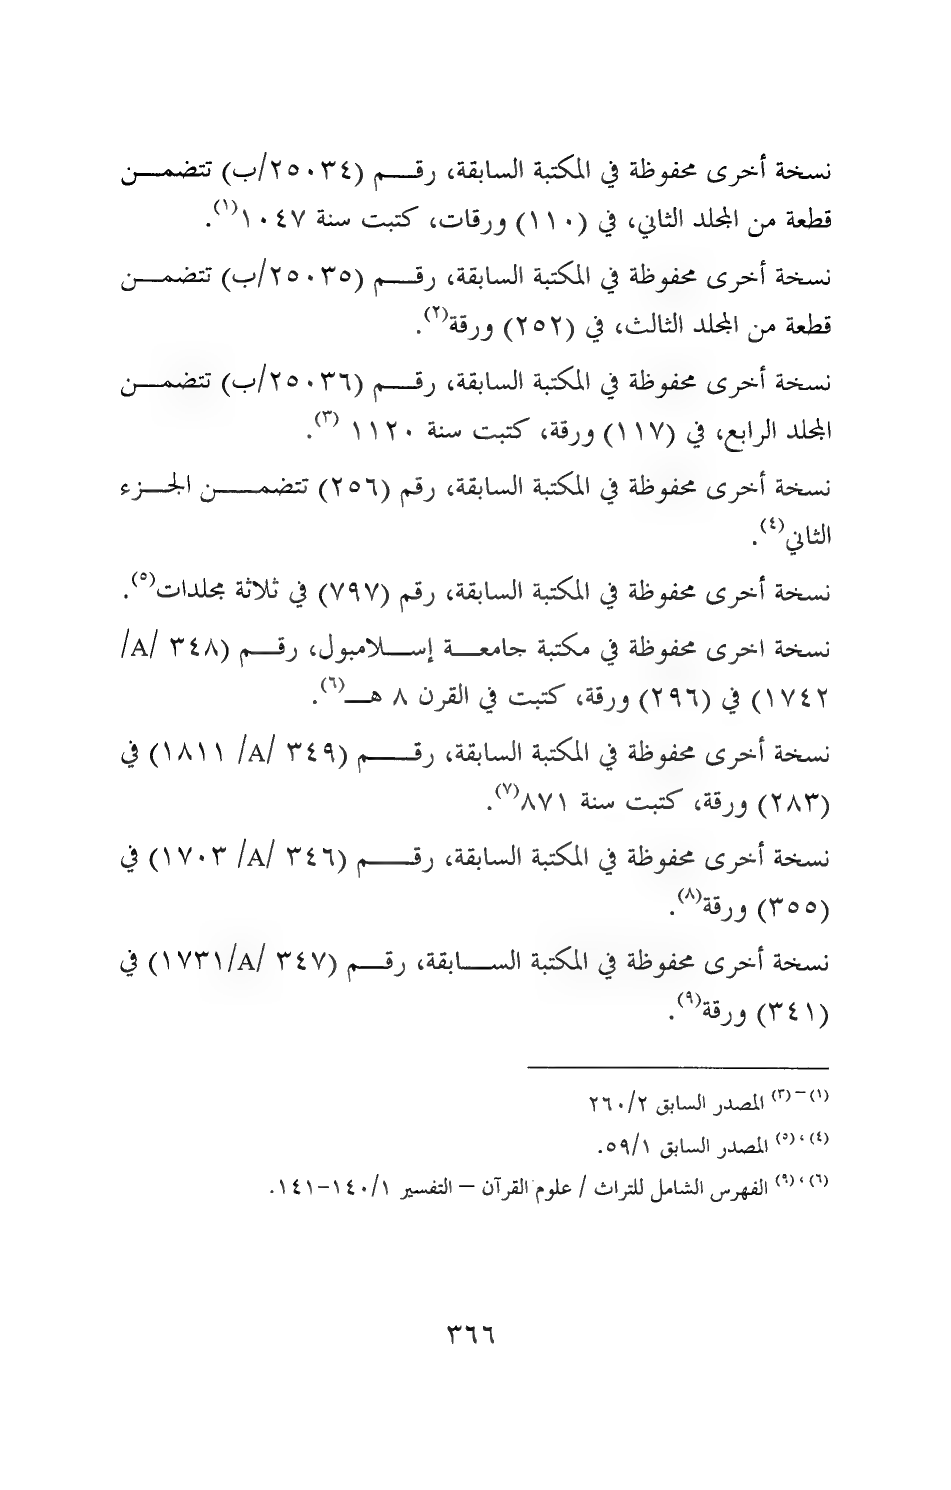 نسخة أخرى محفوظة في المكتبة السابقة، رقم (٢٥٠٣٤/ب) تتضمن
قطعة من المجلد الثاني، في (١١٠) ورقات، كتبت سنة ١٠٤٧(١).
نسخة أخرى محفوظة في المكتبة السابقة، رقم (٢٥٠٣٥/ب) تتضمن
قطعة من المجلد الثالث، في (٢٥٢) ورقة(٢).
نسخة أخرى محفوظة في المكتبة السابقة، رقم (٢٥٠٣٦/ب) تتضمن
المجلد الرابع، في (١١٧) ورقة، كتبت سنة ١١٢٠ (٣).
نسخة أخرى محفوظة في المكتبة السابقة، رقم (٢٥٦) تتضمن الجزء
الثاني(٤).
نسخة أخرى محفوظة في المكتبة السابقة، رقم (٧٩٧) في ثلاثة مجلدات(٥).
نسخة اخرى محفوظة في مكتبة جامعة إسلامبول، رقم (٣٤٨ /A/
١٧٤٢) في (٢٩٦) ورقة، كتبت في القرن ٨ هـ(٦).
نسخة أخرى محفوظة في المكتبة السابقة، رقم (٣٤٩ /A/ ١٨١١) في
(٢٨٣) ورقة، كتبت سنة ٨٧١(٧).
نسخة أخرى محفوظة في المكتبة السابقة، رقم (٣٤٦ /A/ ١٧٠٣) في
(٣٥٥) ورقة(٨).
نسخة أخرى محفوظة في المكتبة السابقة، رقم (٣٤٧ /A/١٧٣١) في
(٣٤١) ورقة(٩).
(١) – (٣) المصدر السابق ٢٦٠/٢
(٤)، (٥) المصدر السابق ٥٩/١.
(٦)، (٩) الفهرس الشامل للتراث / علوم القرآن – التفسير ١٤٠/١-١٤١.
٣٦٦